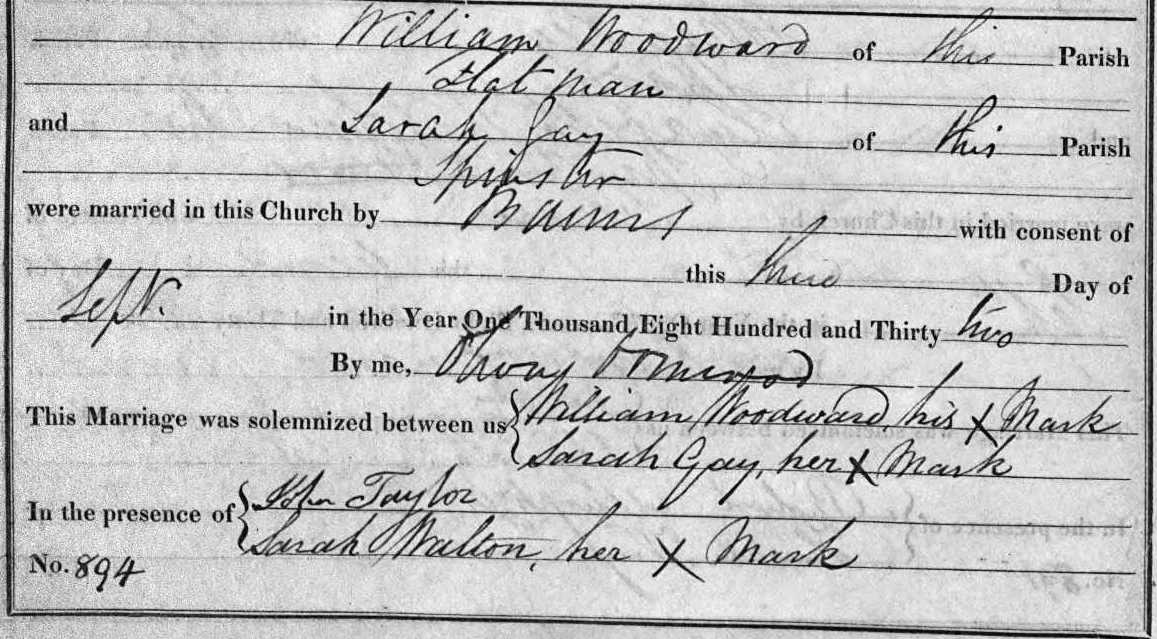 William Woodward of this Parish
Flat man
and Sarah Gay of this Parish
Spinster
were married in this Church by Banns with consent of
this third Day of
Sept. in the Year One Thousand Eight Hundred and Thirty two
By me,
This Marriage was solemnized between us { William Woodward, his X Mark
Sarah Gay, her X Mark
In the presence of { John Taylor
Sarah Walton, her X Mark
No. 894